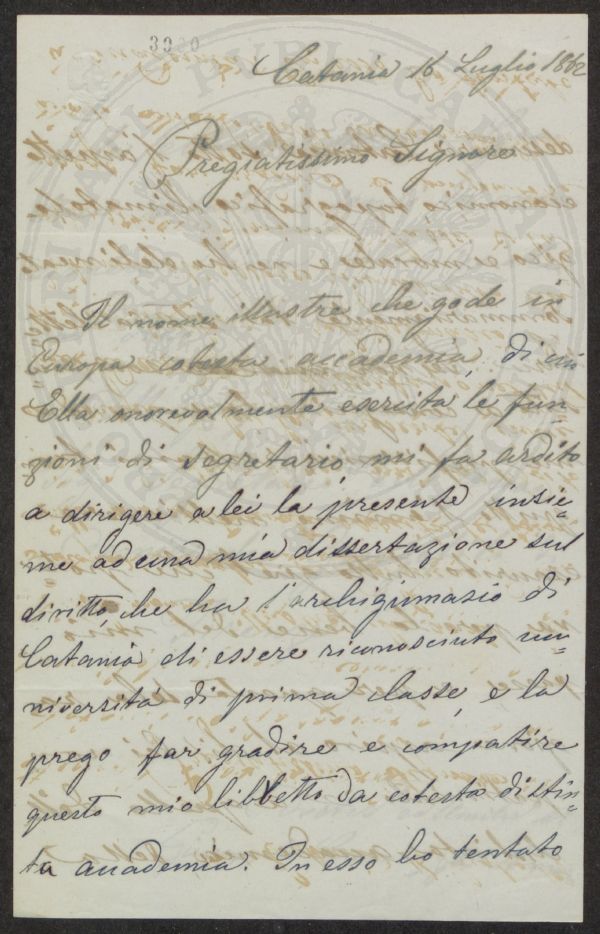 3020
Catania 16 Luglio 1862
Pregiatissimo Signore
Il nome illustre che gode in
Europa cotesta accademia, di cui
Ella onorevolmente esercita le fun=
zioni di segretario mi fa ardito
a dirigere a lei la presente insie=
me ad una mia dissertazione sul
diritto, che ha l'archiginnasio di
Catania di essere riconosciuto un=
niversità di prima classe, e la
prego far gradire e compatire
questo mio libbetto da cotesta distin=
ta accademia. In esso ho tentato